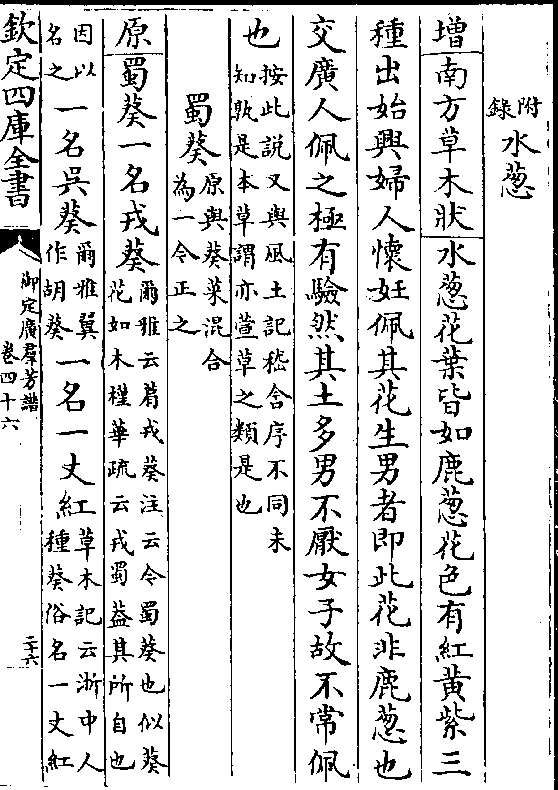 附錄水葱
增南方草木狀水葱花葉皆如鹿葱花色有紅黃紫三
種出始興婦人懷妊佩其花生男者即此花非鹿葱也
交廣人佩之極有驗然其土多男不厭女子故不常佩
也按此說又與風土記嵇含序不同未知孰是本草謂亦萱草之類是也
蜀葵原與葵菜混合為一今正之
原蜀葵一名戎葵爾雅云菺戎葵注云今蜀葵也似葵花如木槿華疏云戎蜀葢其所自也
因以名之一名吳葵爾雅翼作胡葵一名一丈紅草木記云浙中人種葵俗名一丈紅
欽定四庫全書
御定廣羣芳譜
卷四十六
二十六